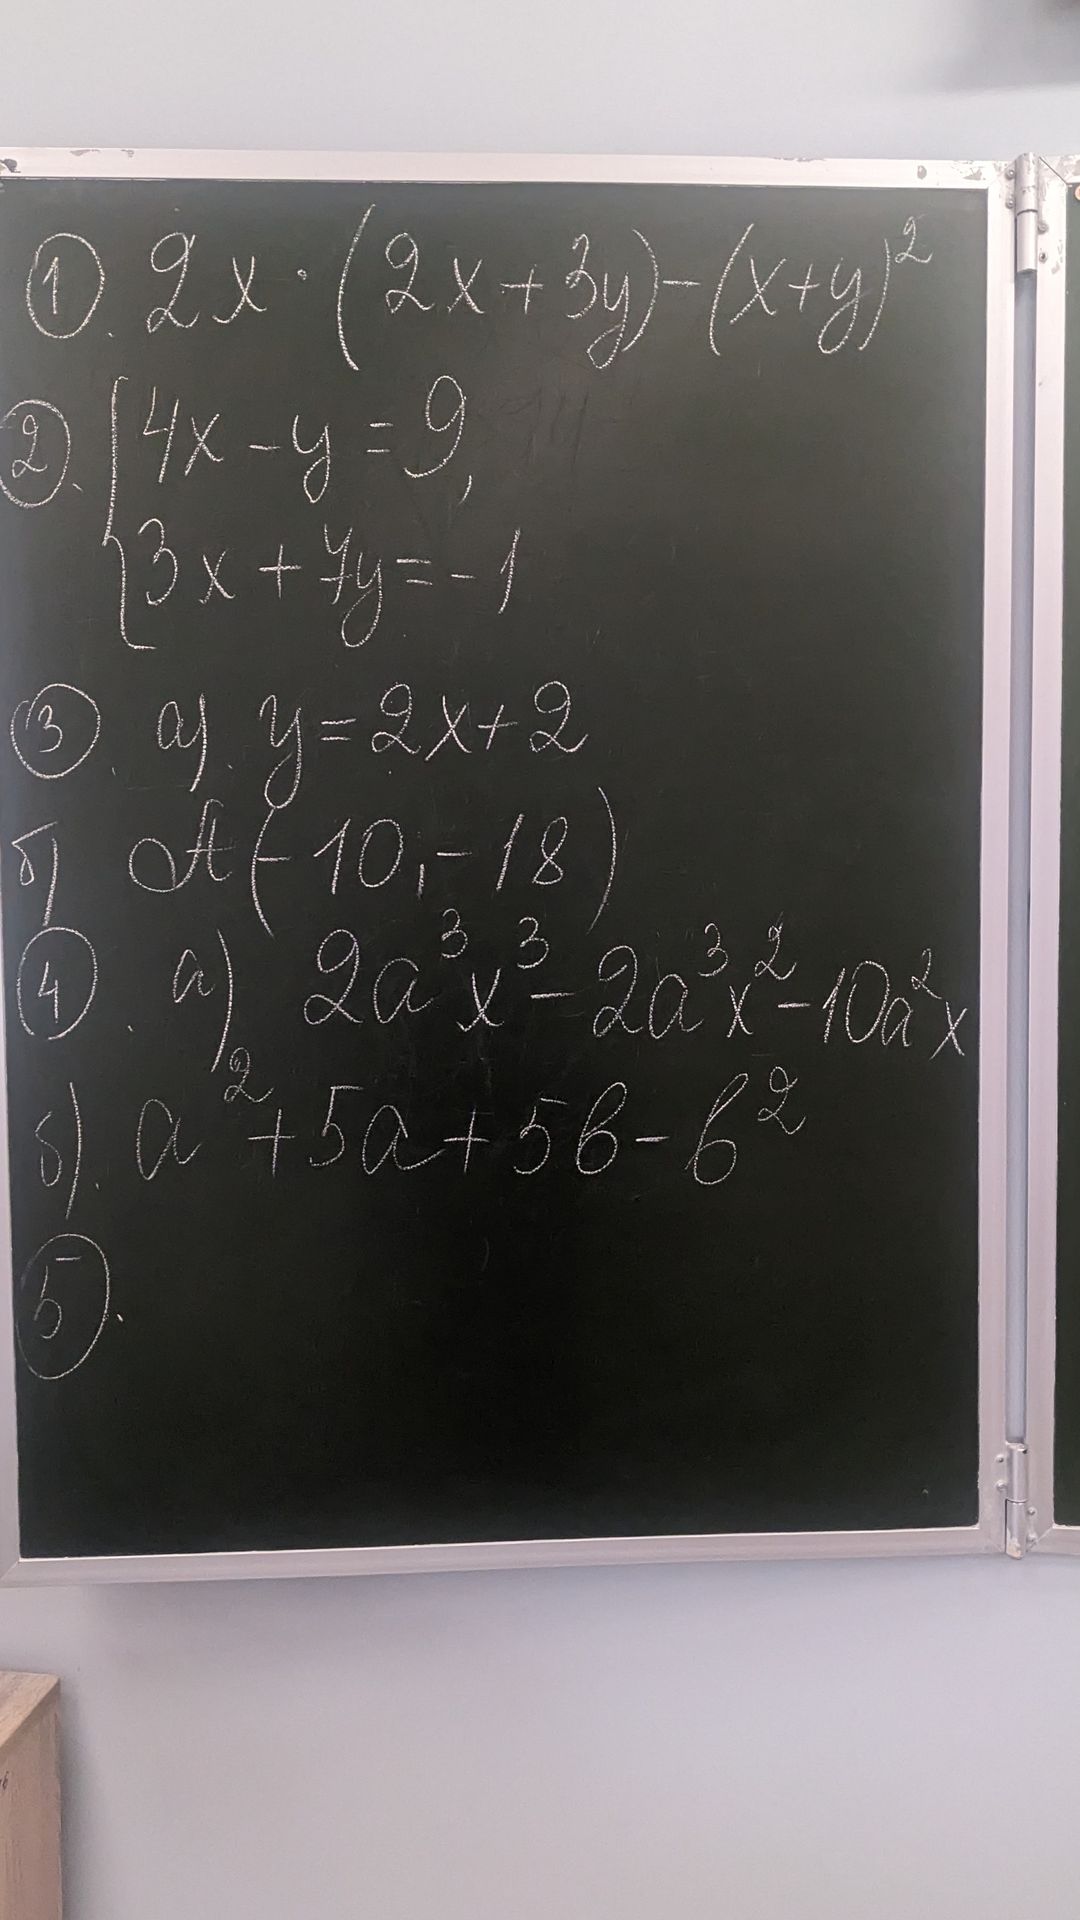 ①. 2x·(2x+3y)-(x+y)²
②. {4x-y=9,
3x+7y=-1
③. а). y=2x+2
б) A(-10;-18)
④. а) 2a³x³-2a³x²-10a²x
б). a²+5a+5b-b²
⑤.